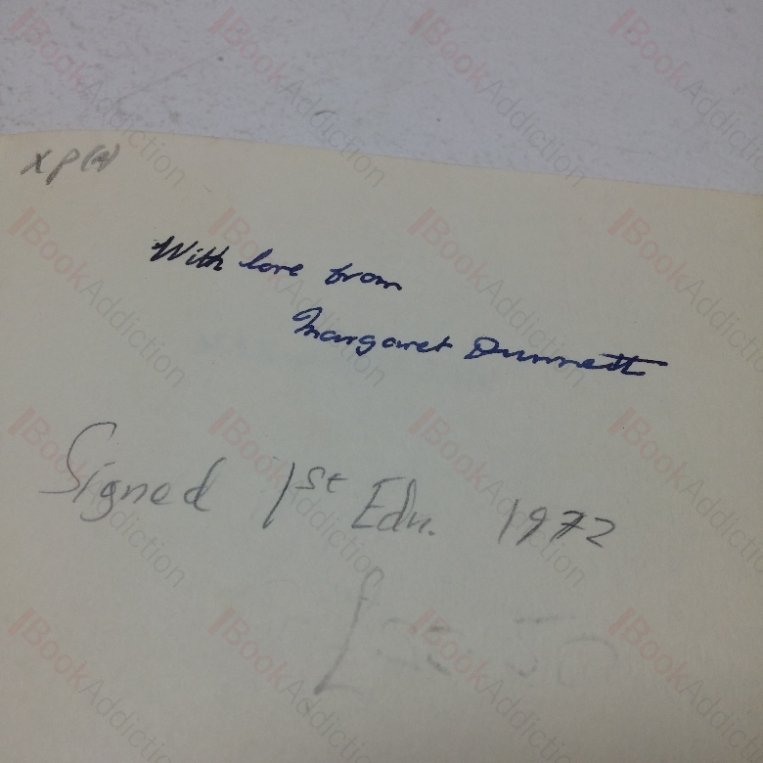 With love from
Margaret Dunnett
Signed 1st Edn. 1972
£
BookAddiction